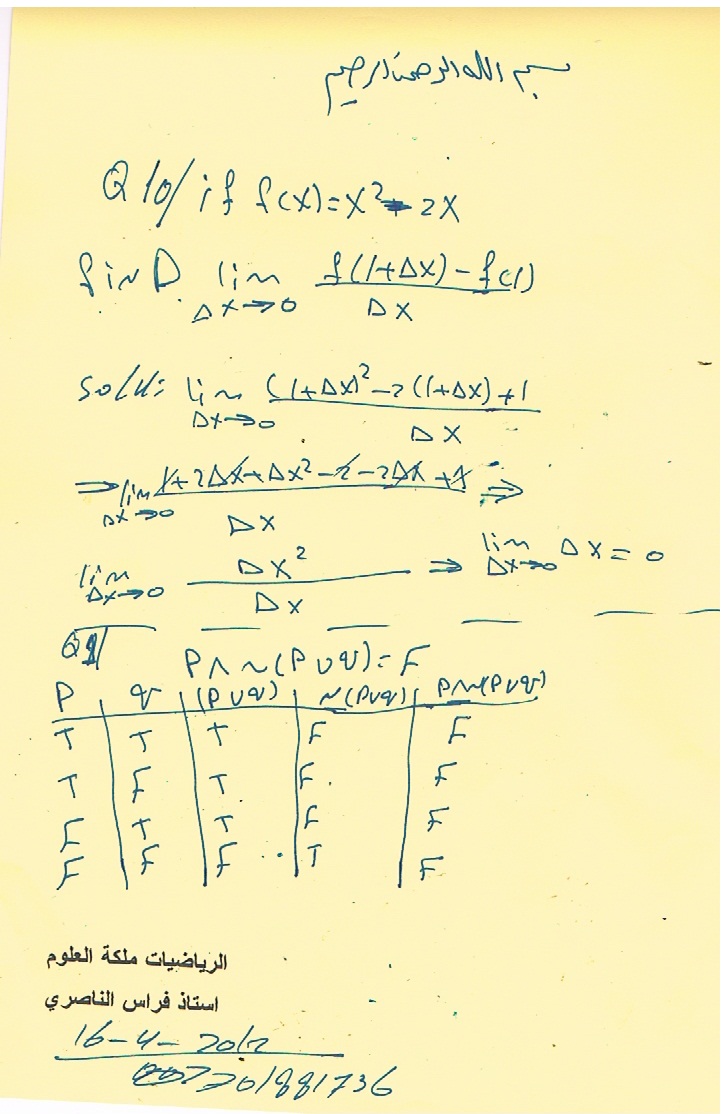 بسم الله الرحمن الرحيم
Q10/ if f(x)=x²-2x
find lim Δx→0 f(1+Δx)-f(1) / Δx
sol//: lim Δx→0 (1+Δx)²-2(1+Δx)+1 / Δx
⇒ lim Δx→0 1+2Δx+Δx²-2-2Δx+1 / Δx ⇒
lim Δx→0 Δx² / Δx ⇒ lim Δx→0 Δx = 0
Q1/ P∧~(P∪q)=F
P | q | (P∪q) | ~(P∪q) | P∧~(P∪q)
T | T | T | F | F
T | F | T | F | F
F | T | T | F | F
F | F | F | T | F
الرياضيات ملكة العلوم
استاذ فراس الناصري
16-4-2012